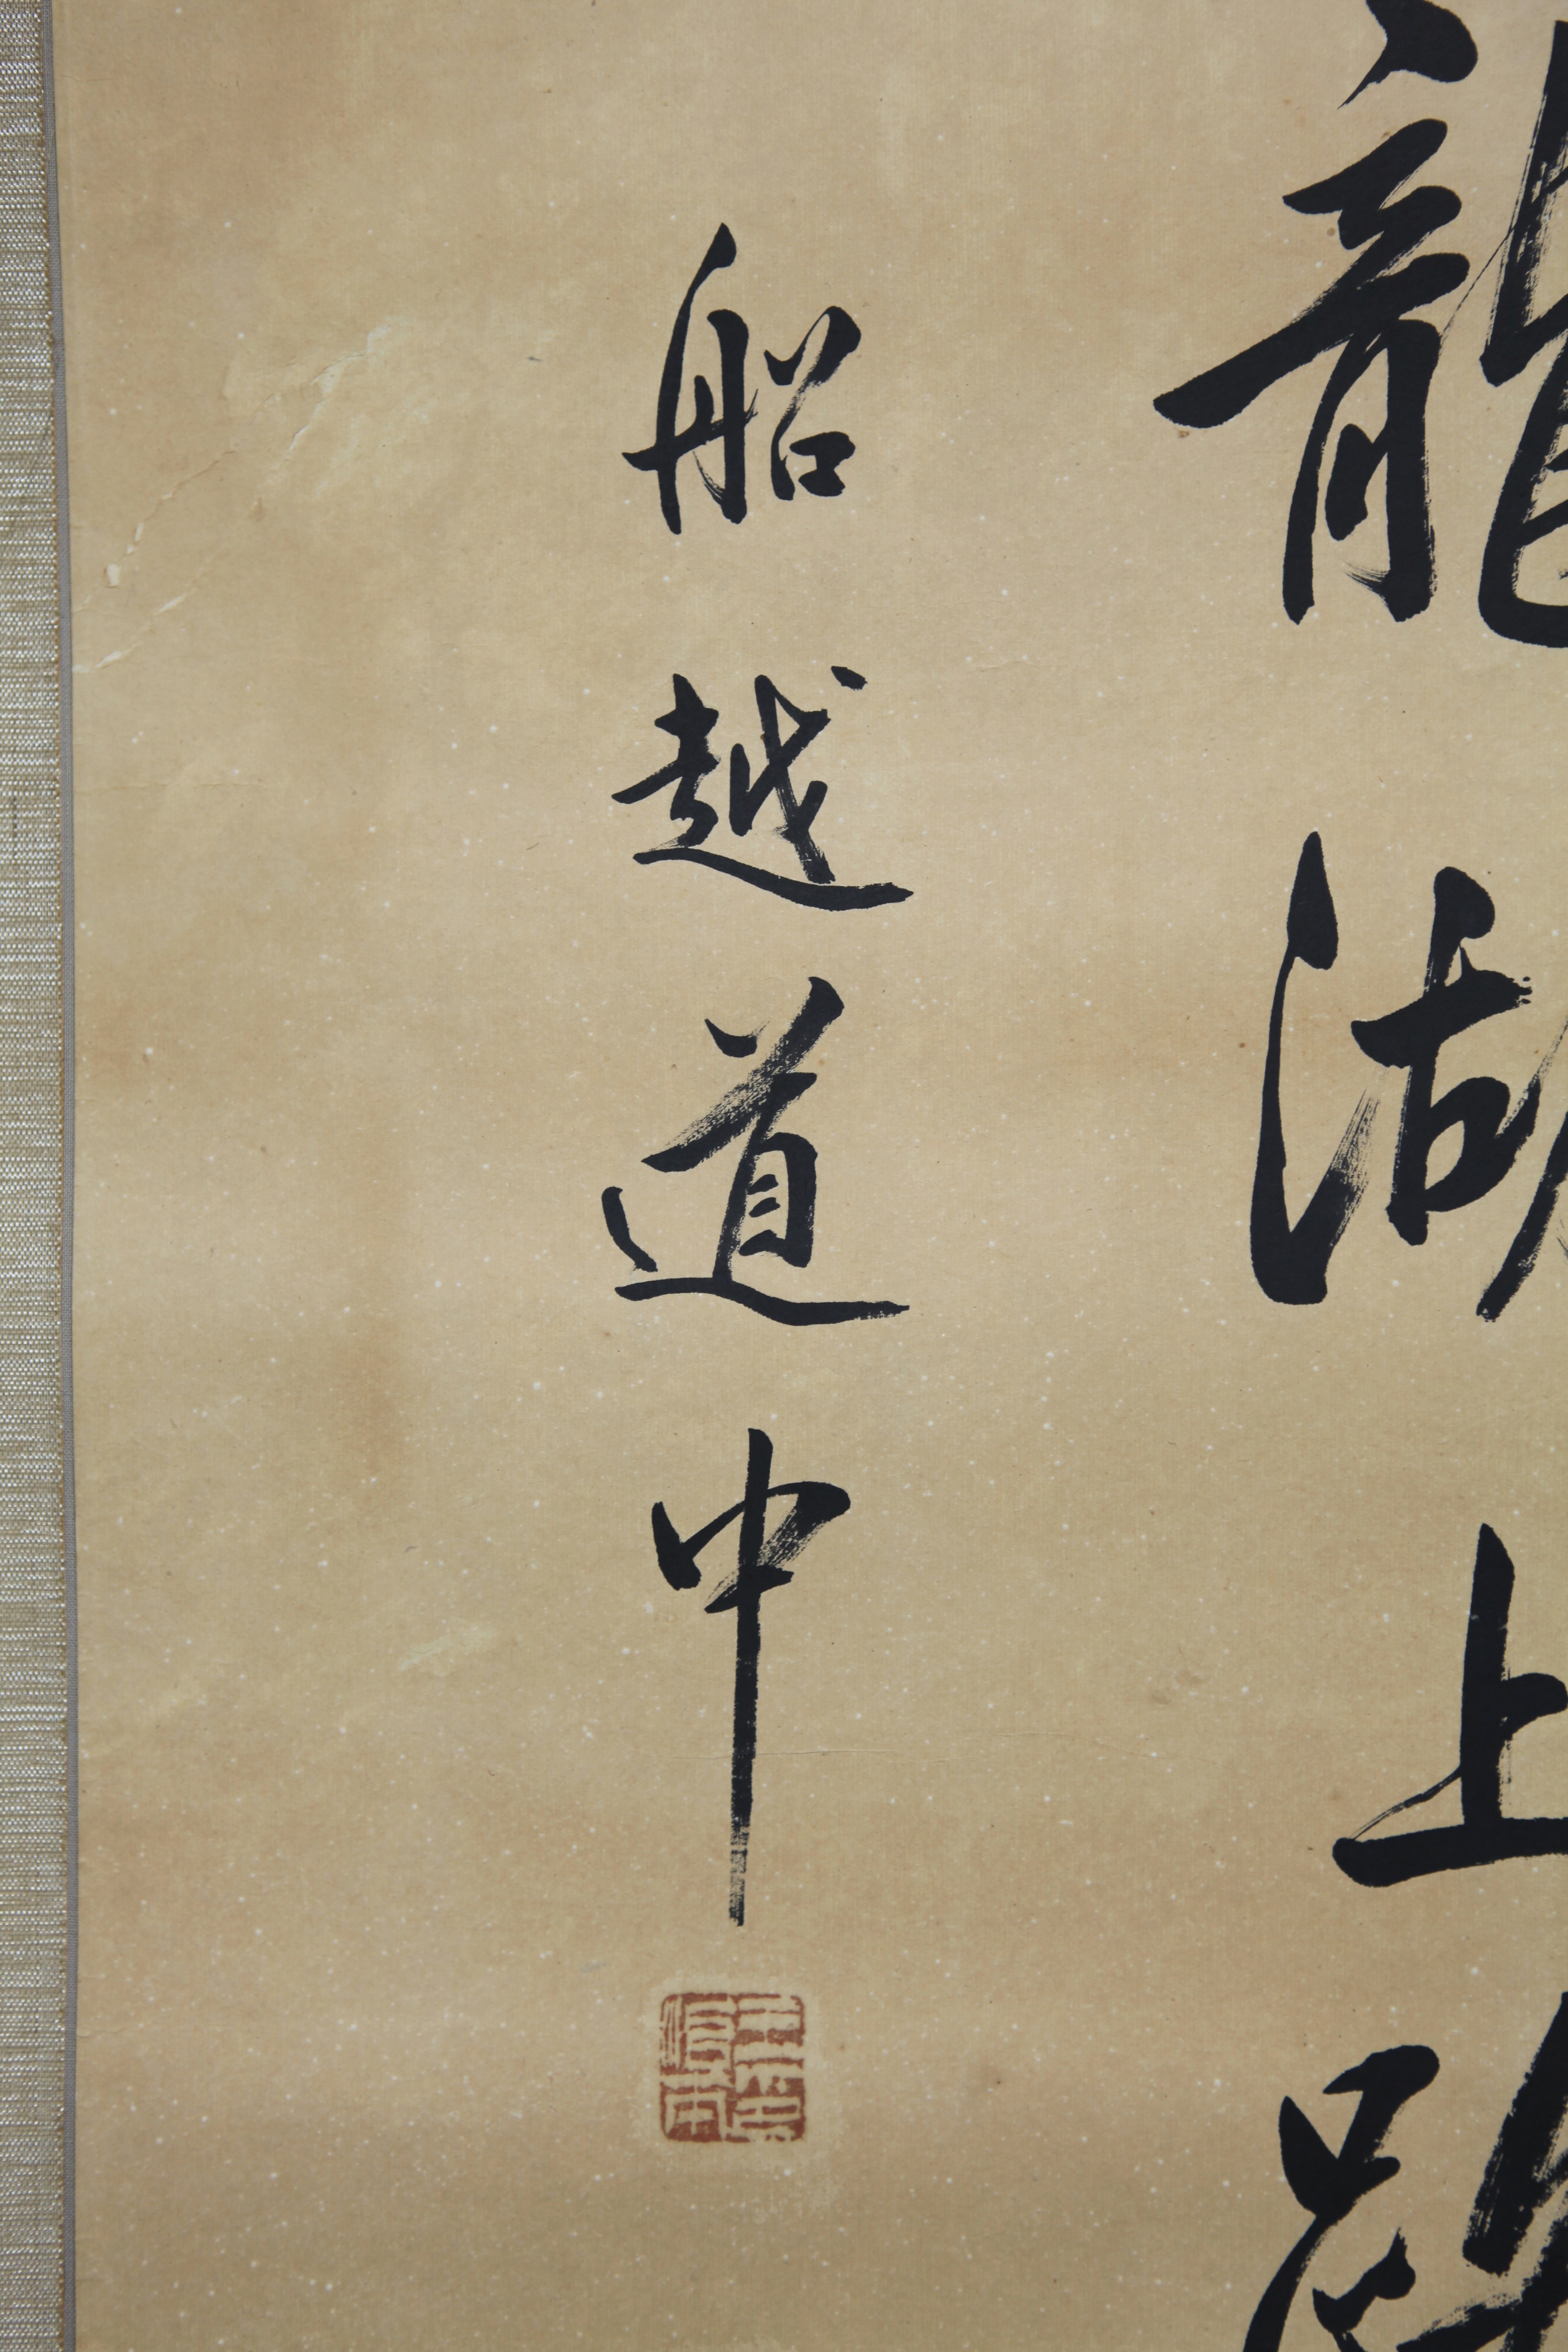 龍湖上路
船越道中